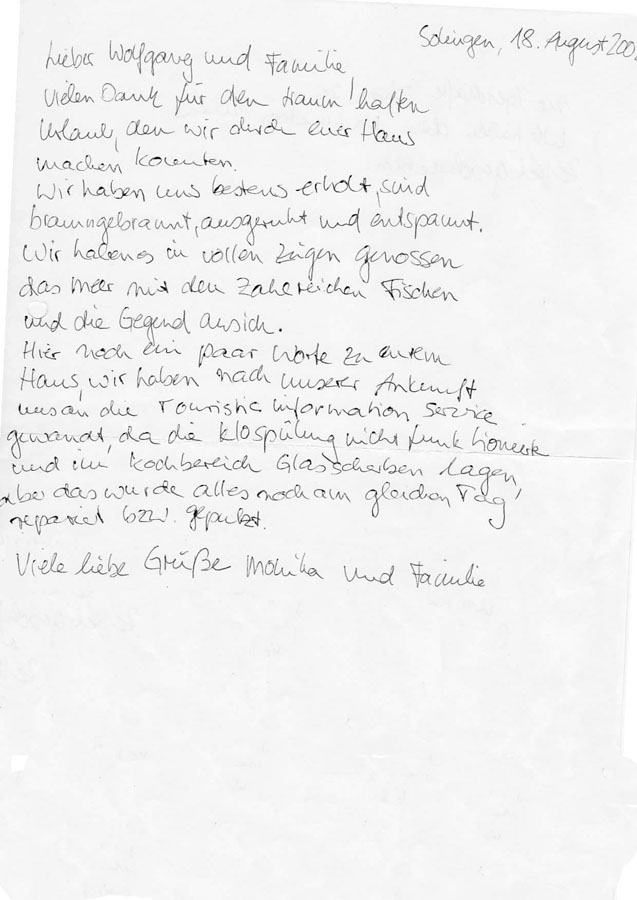 Solingen, 18. August 200
Lieber Wolfgang und Familie
vielen Dank für den traumhaften
Urlaub, den wir durch euer Haus
machen konnten.
Wir haben uns bestens erholt, sind
braungebrannt, ausgeruht und entspannt.
Wir haben es in vollen Zügen genossen
das Meer mit den zahlreichen Fischen
und die Gegend ansich.
Hier noch ein paar Worte zu eurem
Haus, wir haben nach unserer Ankunft
uns an die Touristic information Service
gewandt, da die Klospülung nicht funktionierte
und im Kochbereich Glasscherben lagen,
aber das wurde alles noch am gleichen Tag
repariet bzw. geputzt.
Viele liebe Grüße Monika und Familie